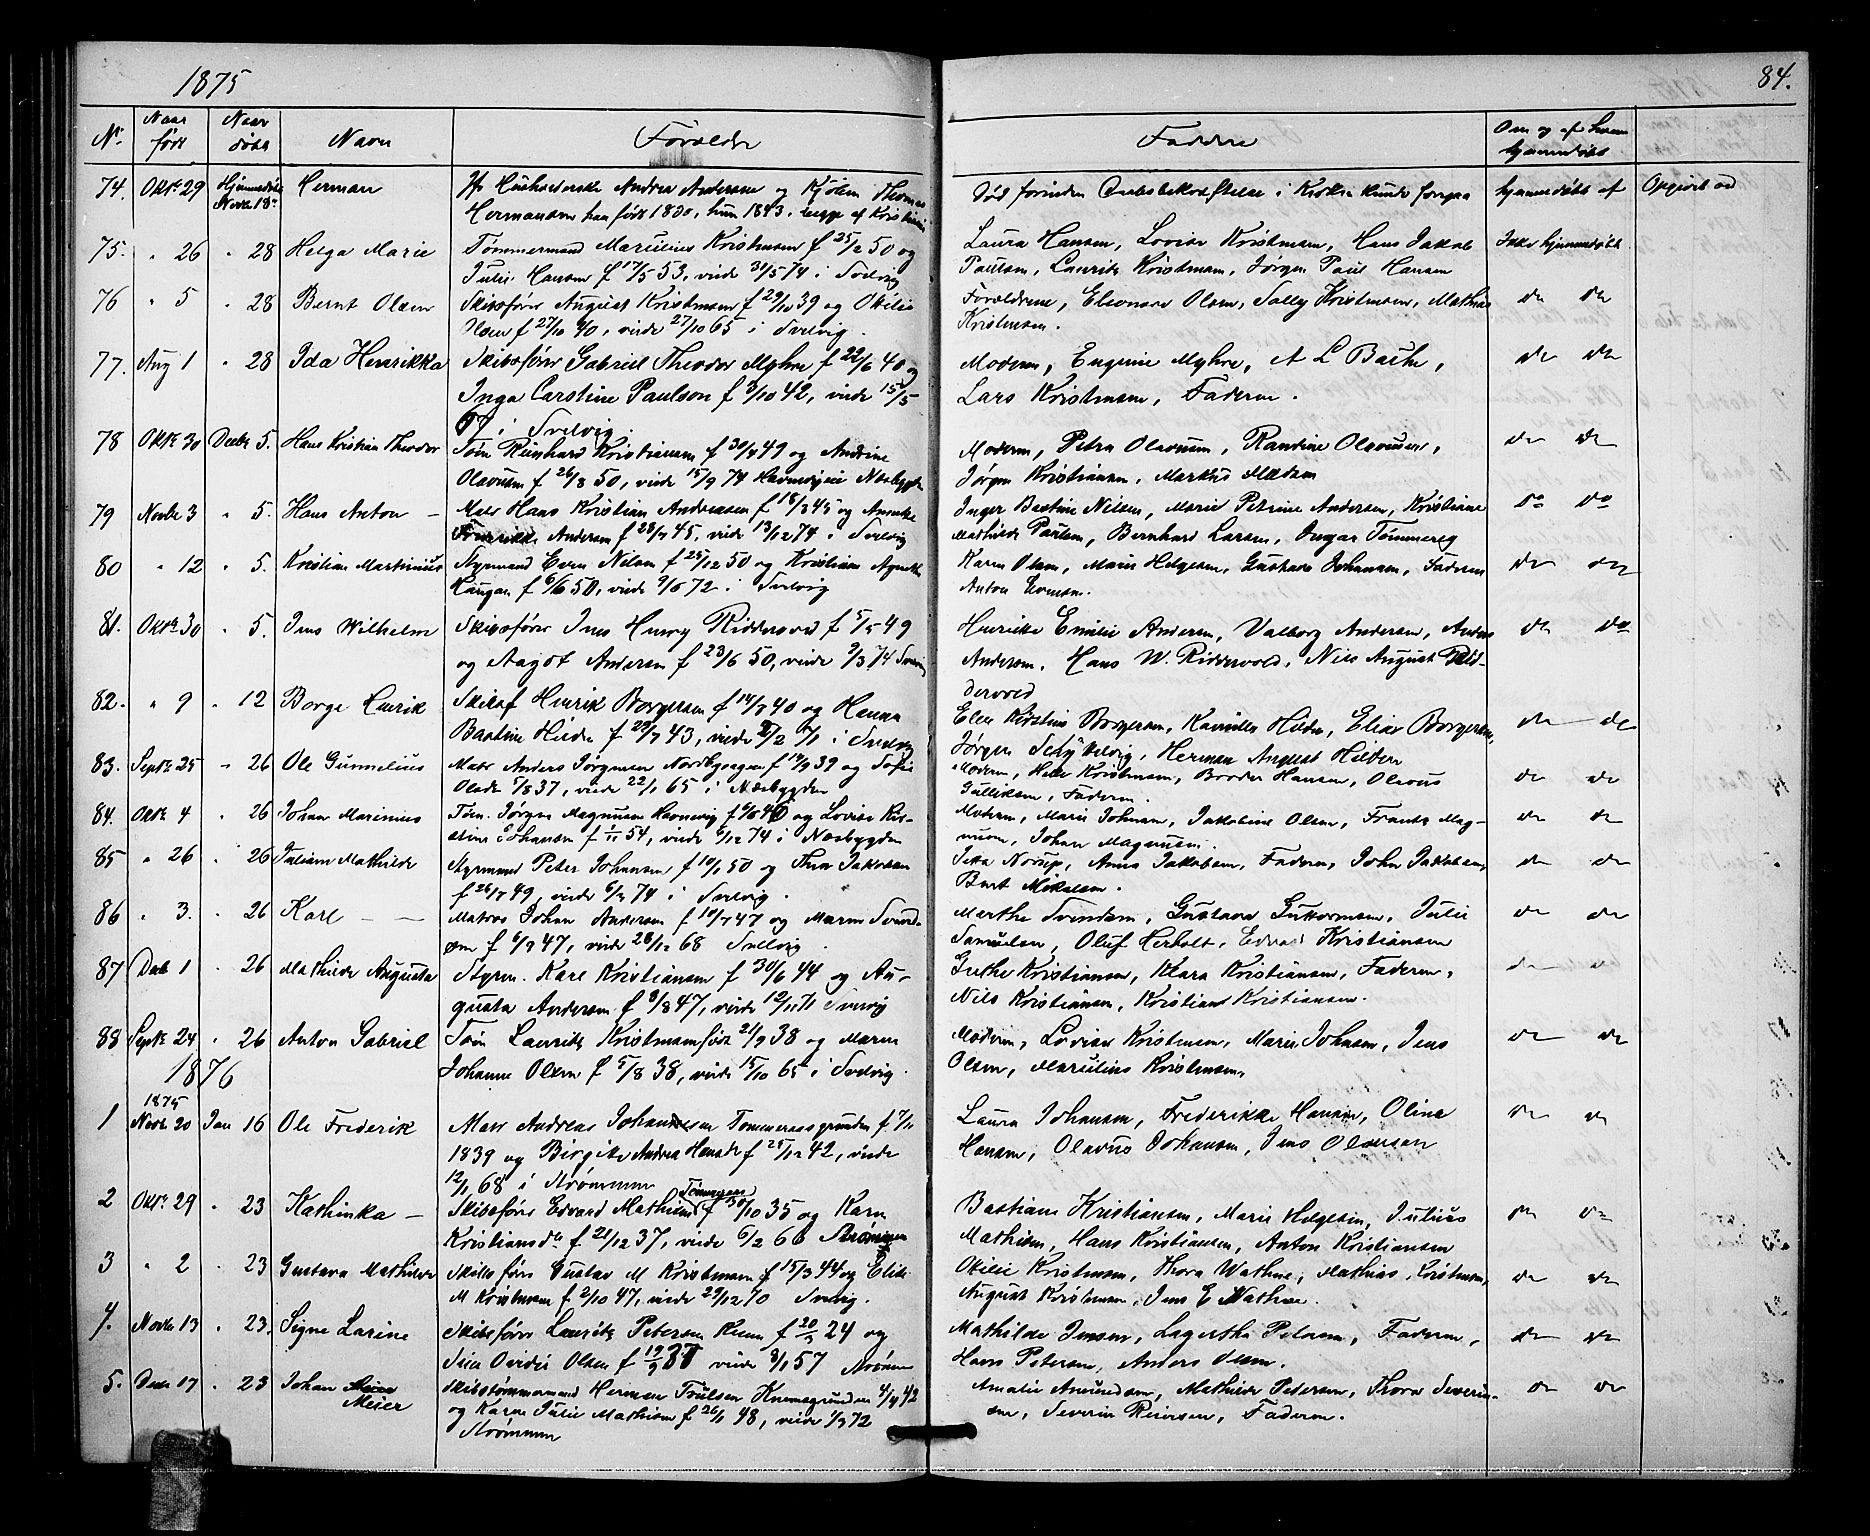 1875
84.
No. Naar født Naar døbt Navn Forældre Faddere Om og af hvem hjemmedøbt
74. Oktr. 29 Hjemmedøbt Novbr 18 Herman Andrea Andersen og Thomas Død forinden Daabsbekræftelse i Kirken kunde foregaa hjemmedøbt af
Hermansen han født 1830, hun 1843, begge af
75. " 26 " 28 Helga Marie Tømmermand Marulius Kristensen f 25/2 50 og Laura Hansen, Lovise Kristensen, Hans Jakob Ikke hjemmedøbt
Julie Hansen f 17/5 53, viede 31/5 74 i Svelvig Paulsen, Laurits Kristensen, Jørgen Paul Hansen
76 " 5 " 28 Bernt Olsen Skibsfører August Kristensen f 29/10 39 og Otilie Forældrene, Eleonore Olsen, Sally Kristensen, Mathias do do
Olsen f 27/10 40, viede 27/10 65 i Svelvig. Kristensen.
77. Aug 1 " 28 Ida Henrikka Skibsfører Gabriel Theodor Myhre f 22/6 40 og Moderen, Eugenie Myhre, A L Bache, do do
Inga Carstine Paulson f 3/10 42, viede 15/5 Lars Kristensen, Faderen.
67 i Svelvig.
78 Oktr. 30 Decbr 5. Hans Kristian Theodor Tøm Reinhard Kristiansen f 30/4 49 og Andrine Moderen, Petra Olavusen, Randine Olavusen, do do
Olavusen f 26/8 50, viede 15/9 74 Nesbygden Jørgen Kristiansen, Markus Madsen
79 Novbr 3 " 5. Hans Anton - Matr Hans Kristian Andreasen f 18/3 45 og Inger Bastine Nilsen, Marie Petrine Andersen, Kristiane do do
Andersen f 28/7 45, viede 13/12 74 i Svelvig Mathilde Paulsen, Bernhard Larsen, Ingar Tømmereg
80 " 12 " 5. Kristian Martinius Styrmand Even Nilsen f 25/12 50 og Kristiane Agnethe Karen Olsen, Marie Helgesen, Gustava Johansen, Faderen do do
Haugan f 6/6 50, viede 9/6 72. i Svelvig Anton Evensen.
81. Oktr 30 " 5. Jens Wilhelm Skibsfører Jens Henry Riddervold f 5/5 49 Henrikke Emilie Andersen, Valborg Andersen, Anders do do
og Aagot Andersen f 23/6 50, viede 3/3 74 Svelvig Andersen, Hans W. Riddervold, Nils August Rid-
dervold
82. " 9 " 12 Borge Henrik Henrik Borgersen f 14/7 40 og Hanna Elen Kirstine Borgersen, Kamilla Hilden, Elias Borgersen, do do
Bastine Hilden f 29/7 43, viede 2/2 71 i Svelvig Jørgen Herman August Hilden
83. Septr 25 " 26 Ole Gunnelius Matr Anders Jørgensen f 14/9 39 og Sofie Moderen, Helle Kristensen, Hansen, Olavus do do
Olsdr f 7/8 37, viede 22/1 65 i Næsbygden Gulliksen, Faderen.
84. Oktr 4 " 26 Johan Marinius Tøm. Jørgen Magnusen f 6/10 46 og Lovise Kir- Moderen, Marie Johnsen, Jakobine Olsen, Frants Mag- do do
stine Johansen f 1/11 54, viede 6/12 74 i Næsbygden nusen, Johan Magnusen.
85 " 26 " 26 Juliane Mathilde Styrmand Peter Johansen f 10/1 50 og Thea Jakobsen Jetta Norup, Anna Jakobsen, Faderen, John Jakobsen, do do
f 26/7 49, viede 6/2 74 i Svelvig. Mikalsen.
86 " 3. " 26 Karl - - Matros Johan Andersen f 10/7 47 og Maren Svend- Marthe Svendsen, Gustava Guttormsen, Julie do do
sen f 6/7 47, viede 28/12 68 Svelvig. Samuelsen, Oluf Herholt, Edvard Kristiansen
87 Decb 1 " 26 Mathilde Augusta Styrm. Karl Kristiansen f 30/6 44 og Au- Grethe Kristiansen, Klara Kristiansen, Faderen, do do
gusta Andersen f 8/8 47, viede 12/11 71 Svelvig Nils Kristiansen, Kristian Kristiansen.
88 Septr 24 " 26 Anton Gabriel Tøm Laurits Kristensen født 21/9 38 og Maren Moderen, Lovise Kristensen, Marie Johnsen, Jens do do
Johanne Olsen f 5/8 38, viede 15/10 65 i Svelvig. Olsen, Marulius Kristensen.
1876
1 1875 Novbr 20 Jan 16 Ole Frederik Matr Andreas Johannesen f 7/11 Laura Johansen, Frederikke Hansen, Olina do do
1839 og Birgite Andrea Hansdr f 25/12 42, viede Hansen, Olavus Johansen, Jens Olaversen
12/1 68 i Strømmen
2 Oktr. 29 " 23 Kathinka - Skibsfører Edvard Mathisen f 30/10 35 og Karen Bastiane Kristiansen, Marie Helgesen, Julius do do
Kristiansdr f 21/12 37, viede 6/2 60 Strømmen Mathisen, Hans Kristiansen, Anton Kristiansen
3 " 2 " 23 Gustava Mathilde Skibsfører Gustav M Kristensen f 15/3 44 og Elise Otilie Kristensen, Thora Wathne, Mathias Kristensen, do do
M Kristensen f 2/10 47, viede 29/12 70 Svelvig. August Kristensen, Jens E Wathne.
4. Novbr 13 " 23. Signe Larine Skibsfører Laurits Petersen f 20/3 24 og Mathilde Jensen, Lagertha Petersen, Faderen, do do
Olsen f 19/9 37 viede 3/1 57 Strømmen Hans Petersen, Anders Olsen.
5. Decbr 17 " 23 Johan Meier Skibstømmermand Herman Trulsen 4/4 42 Amalie Amundsen, Mathilde Petersen, Thora Severin- do do
og Karen Julie Mathisen f 26/1 48, viede 1/3 72 sen, Severin Reiersen, Faderen.
Strømmen